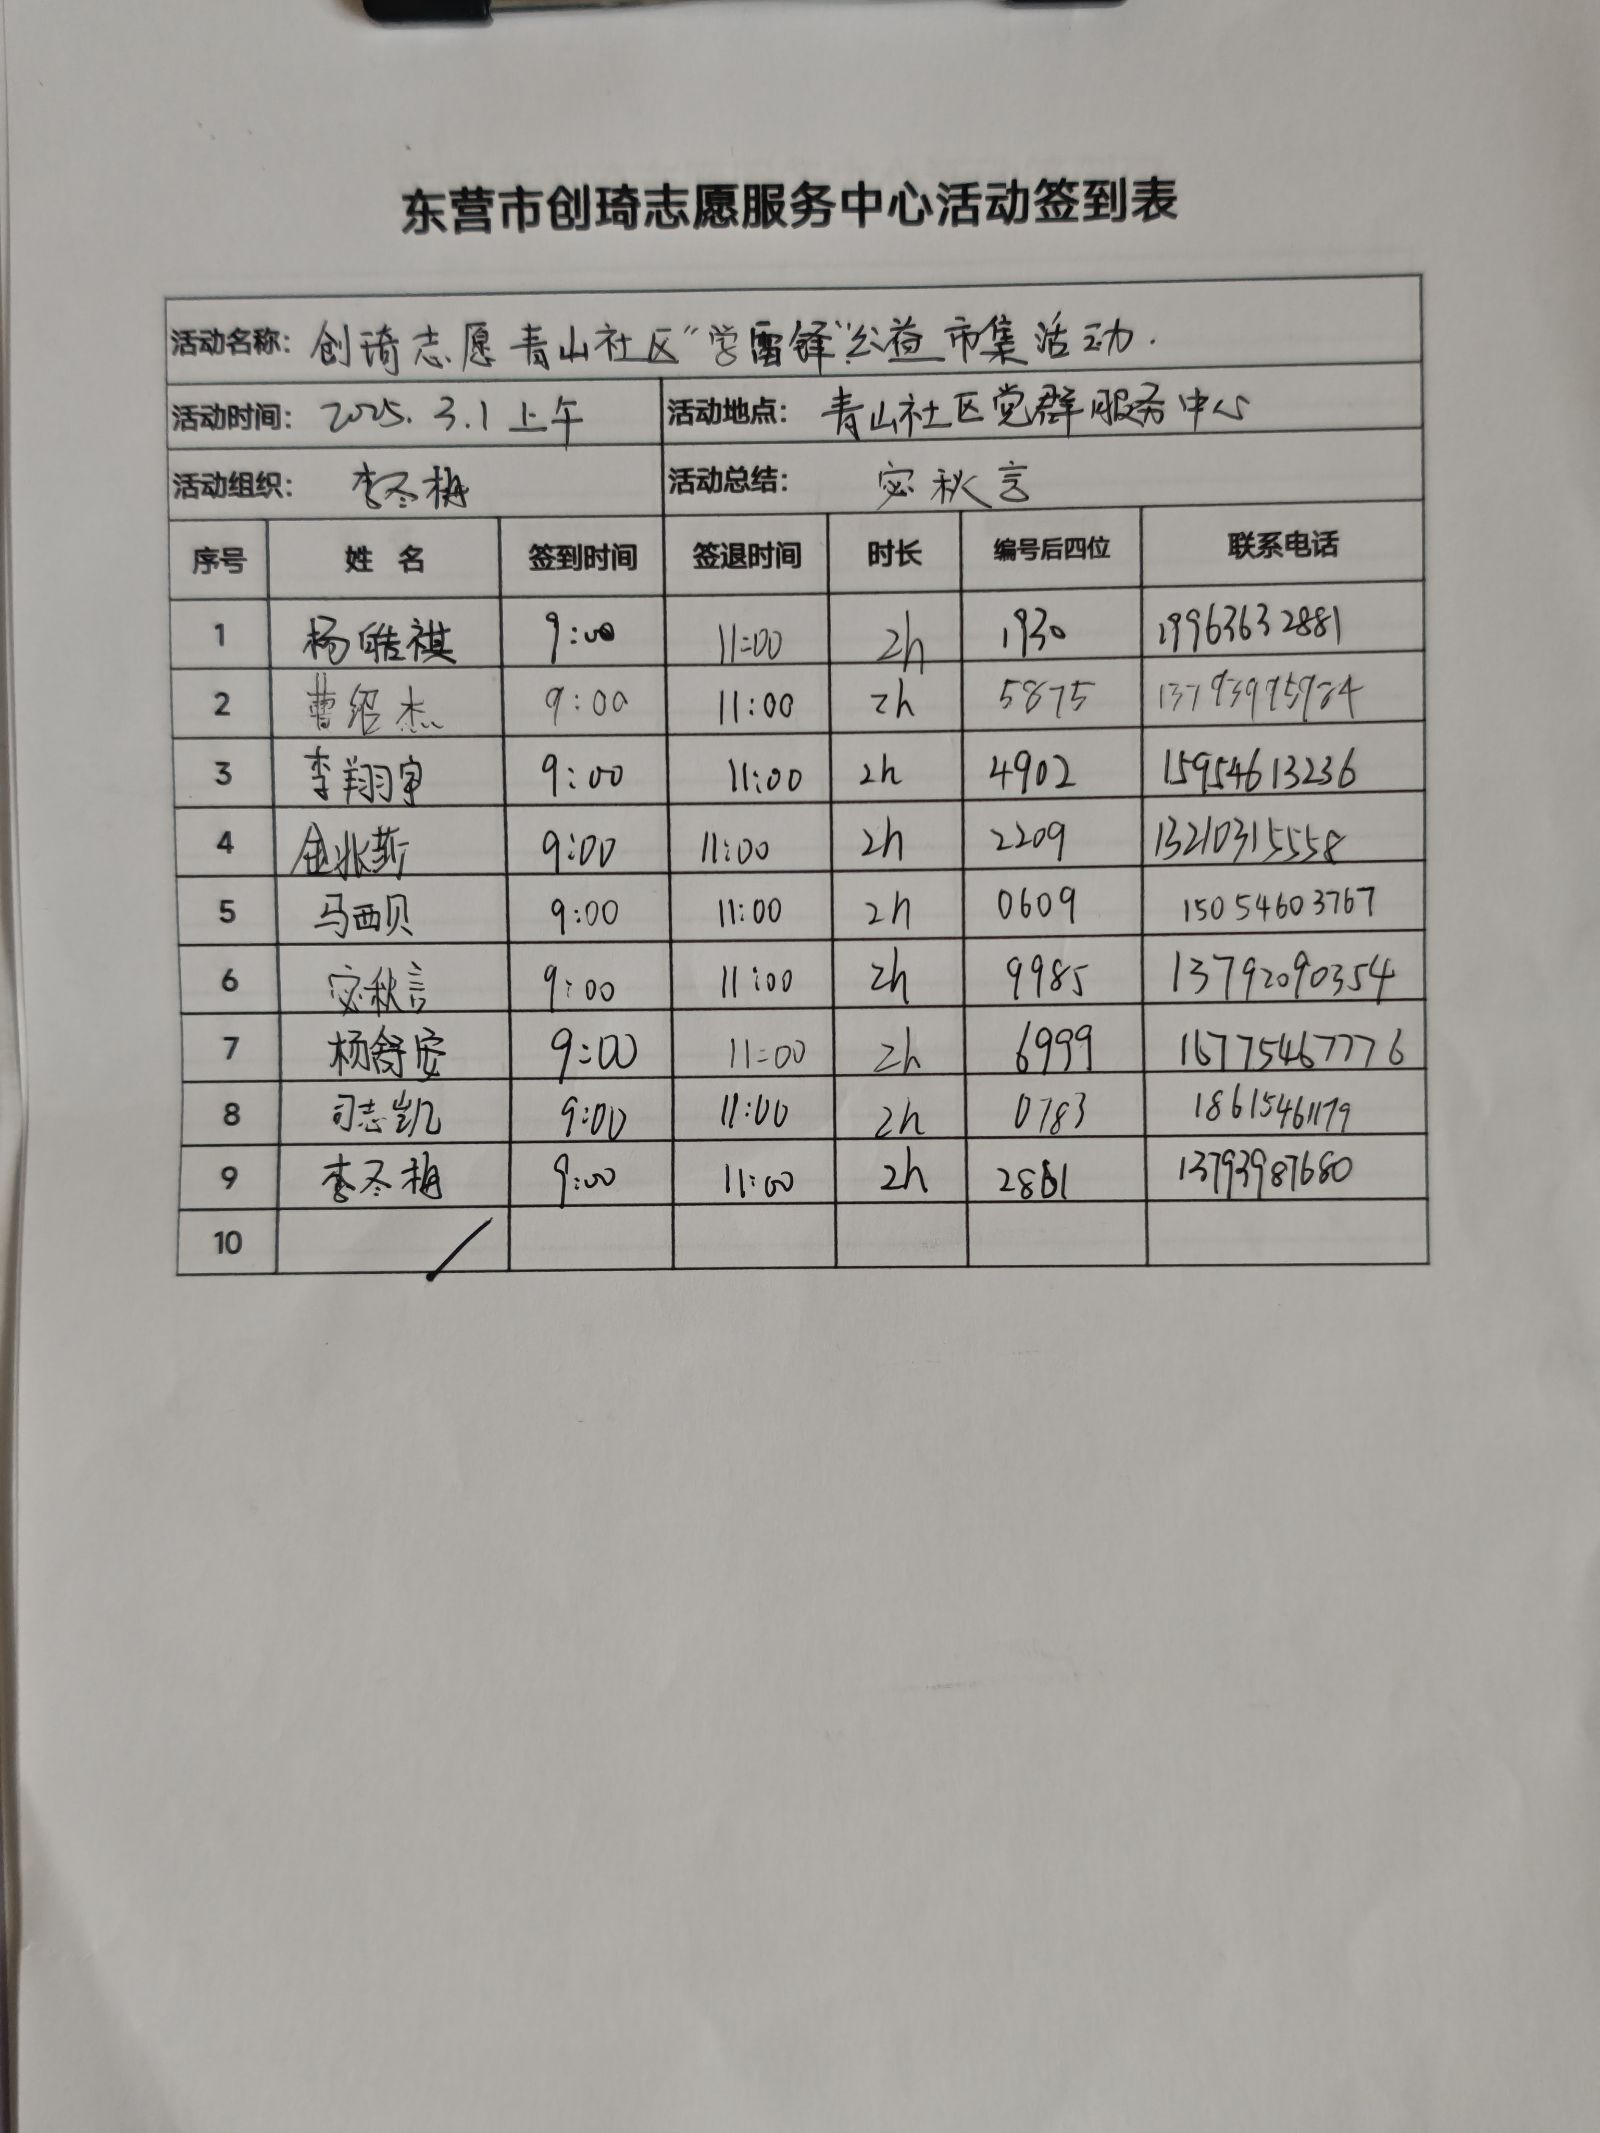 东营市创琦志愿服务中心活动签到表
活动名称: 创琦志愿青山社区“学雷锋”公益市集活动.
活动时间: 2025.3.1上午 活动地点: 青山社区党群服务中心
活动组织: 李冬梅 活动总结: 宓秋言
序号 姓名 签到时间 签退时间 时长 编号后四位 联系电话
1 杨皓祺 9:00 11:00 2h 1930 19963632881
2 曹绍杰 9:00 11:00 2h 5875 13793995984
3 李翔宇 9:00 11:00 2h 4902 15954613236
4 9:00 11:00 2h 2209 13210315558
5 马西贝 9:00 11:00 2h 0609 15054603767
6 宓秋言 9:00 11:00 2h 9985 13792090354
7 杨舒安 9:00 11:00 2h 6999 16775467776
8 司志凯 9:00 11:00 2h 0783 18615461179
9 李冬梅 9:00 11:00 2h 2861 13793987680
10